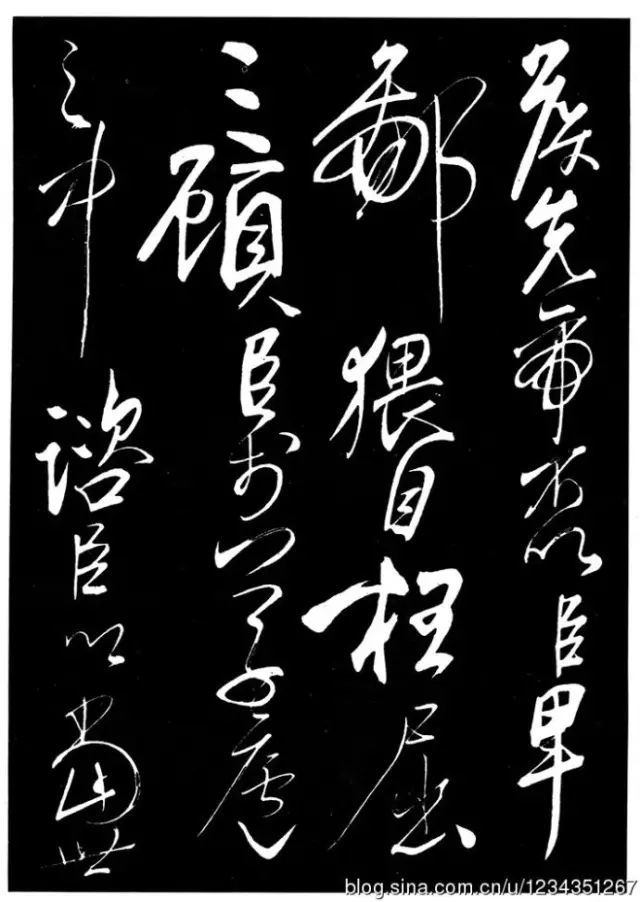 侯先帝不以臣卑
鄙猥自枉屈
三顾臣於草庐
之中谘臣以当世
blog.sina.com.cn/u/1234351267